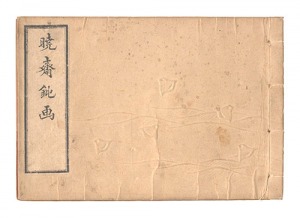 暁斎鈍画